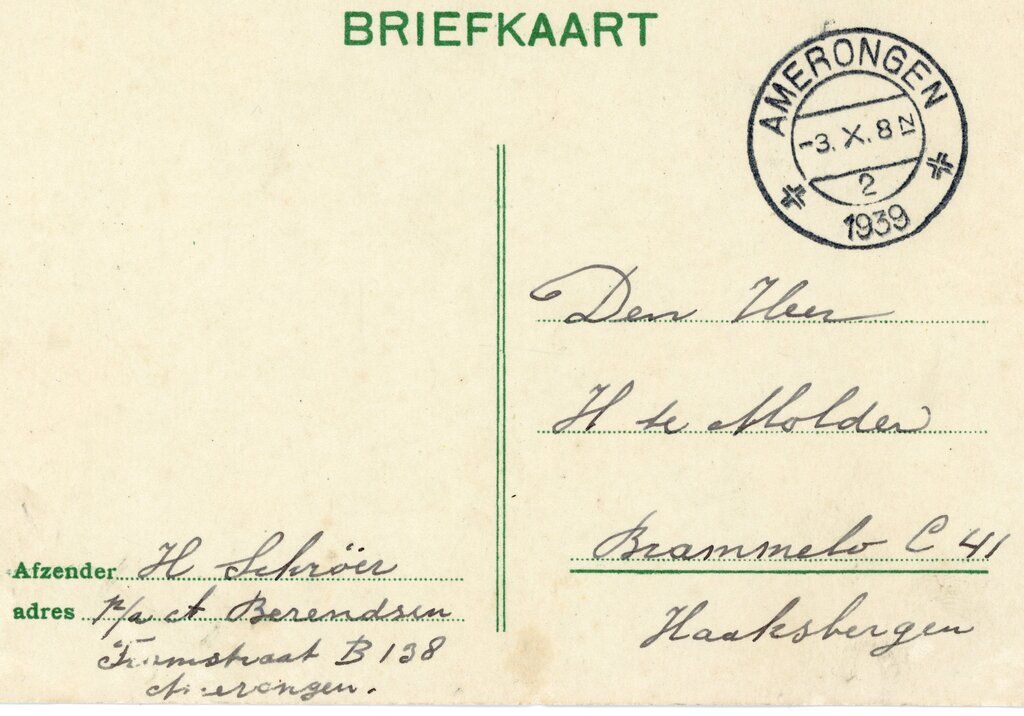 BRIEFKAART
AMERONGEN
-3.X.8 N
2
1939
Den Heer
H te Molder
Brammelo C 41
Haaksbergen
Afzender H Schröer
adres p/a A Berendsen
B 138
Amerongen.